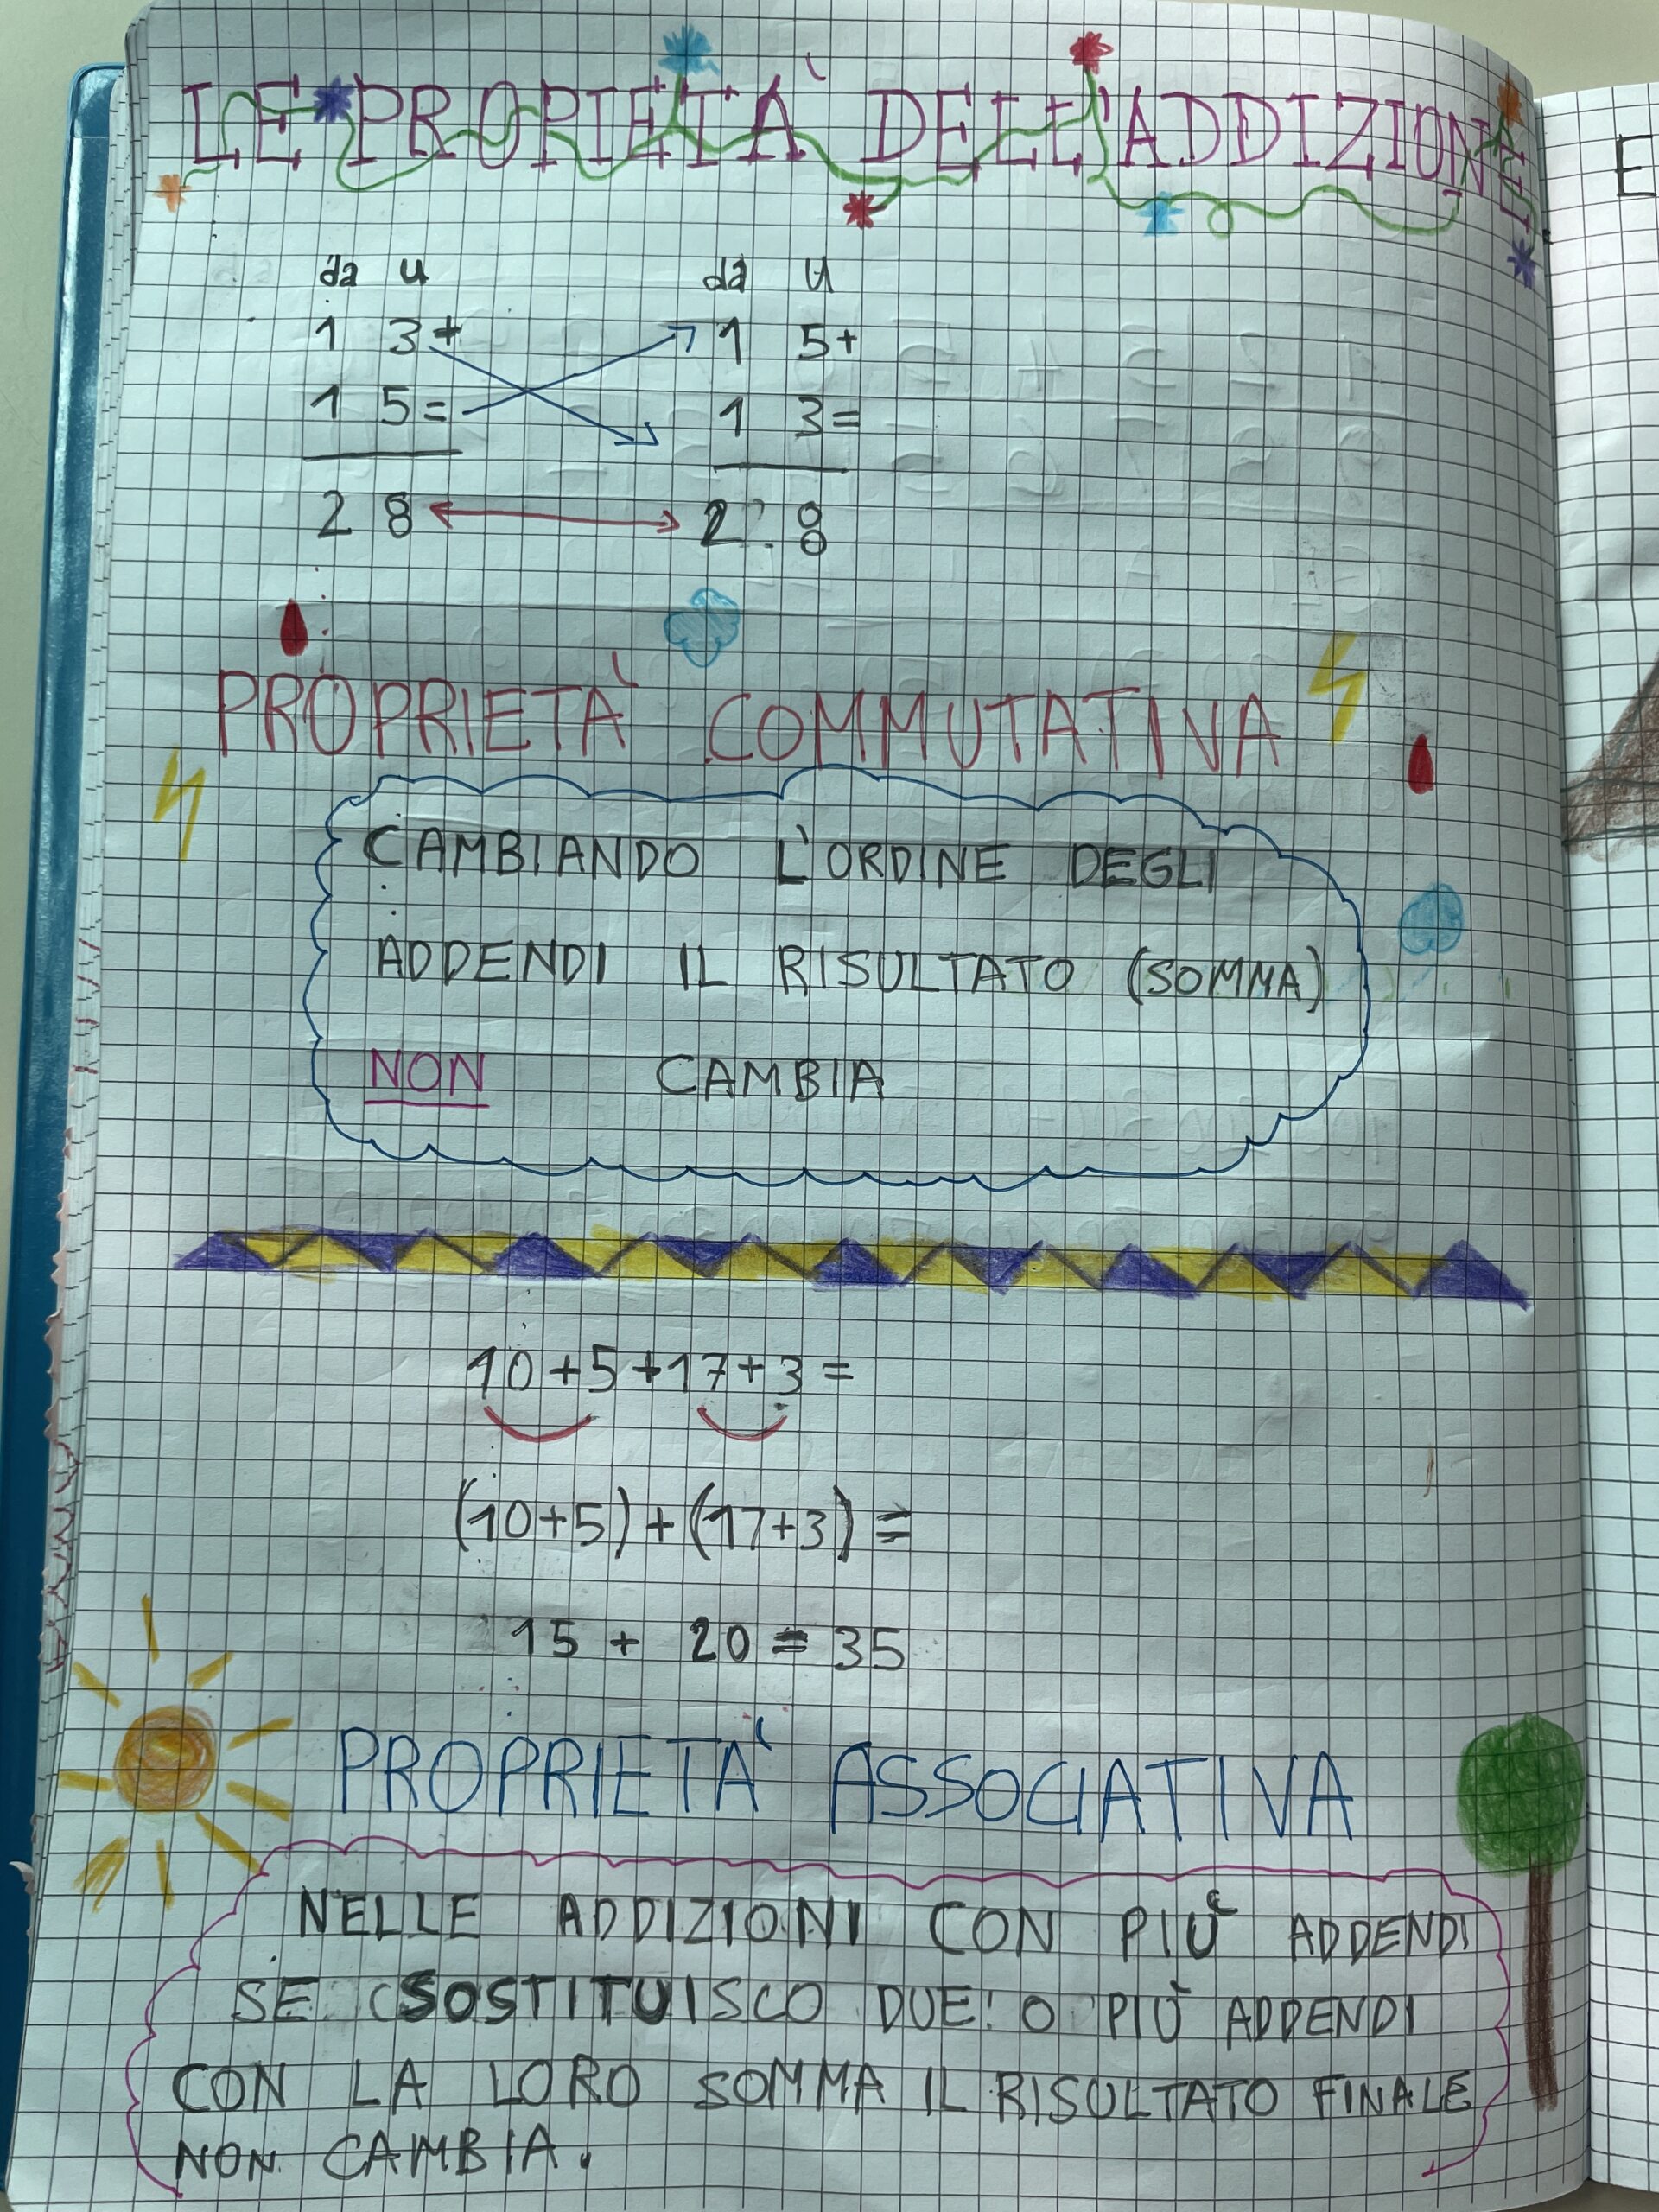 LE PROPIETÀ DELL'ADDIZIONE
da u da u
1 3+ 1 5+
1 5= 1 3=
2 8 2 8
PROPRIETÀ COMMUTATIVA
CAMBIANDO L'ORDINE DEGLI
ADDENDI IL RISULTATO (SOMMA)
NON CAMBIA
10+5+17+3=
(10+5)+(17+3)=
15 + 20 = 35
PROPRIETÀ ASSOCIATIVA
NELLE ADDIZIONI CON PIÙ ADDENDI
SE SOSTITUISCO DUE O PIÙ ADDENDI
CON LA LORO SOMMA IL RISULTATO FINALE
NON CAMBIA.
E